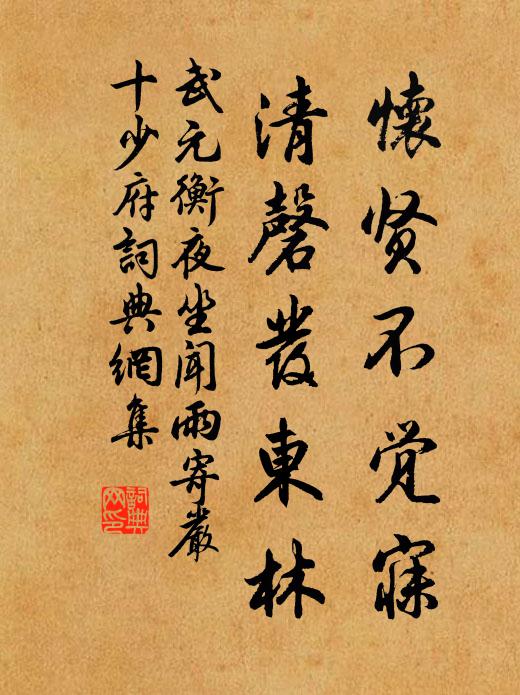 懷贤不觉寐
清磬發東林
武元衡夜坐聞雨寄嚴
十少府詞典網集
詞典
网印